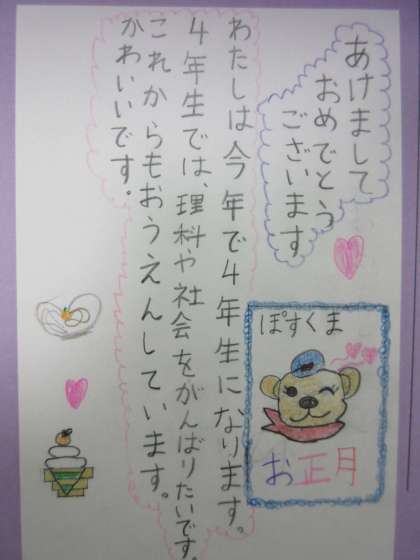 あけまして
おめでとう
ございます
わたしは今年で4年生になります。
4年生では、理科や社会をがんばりたいです。
これからもおうえんしています。
かわいいです。
ぽすくま
お正月